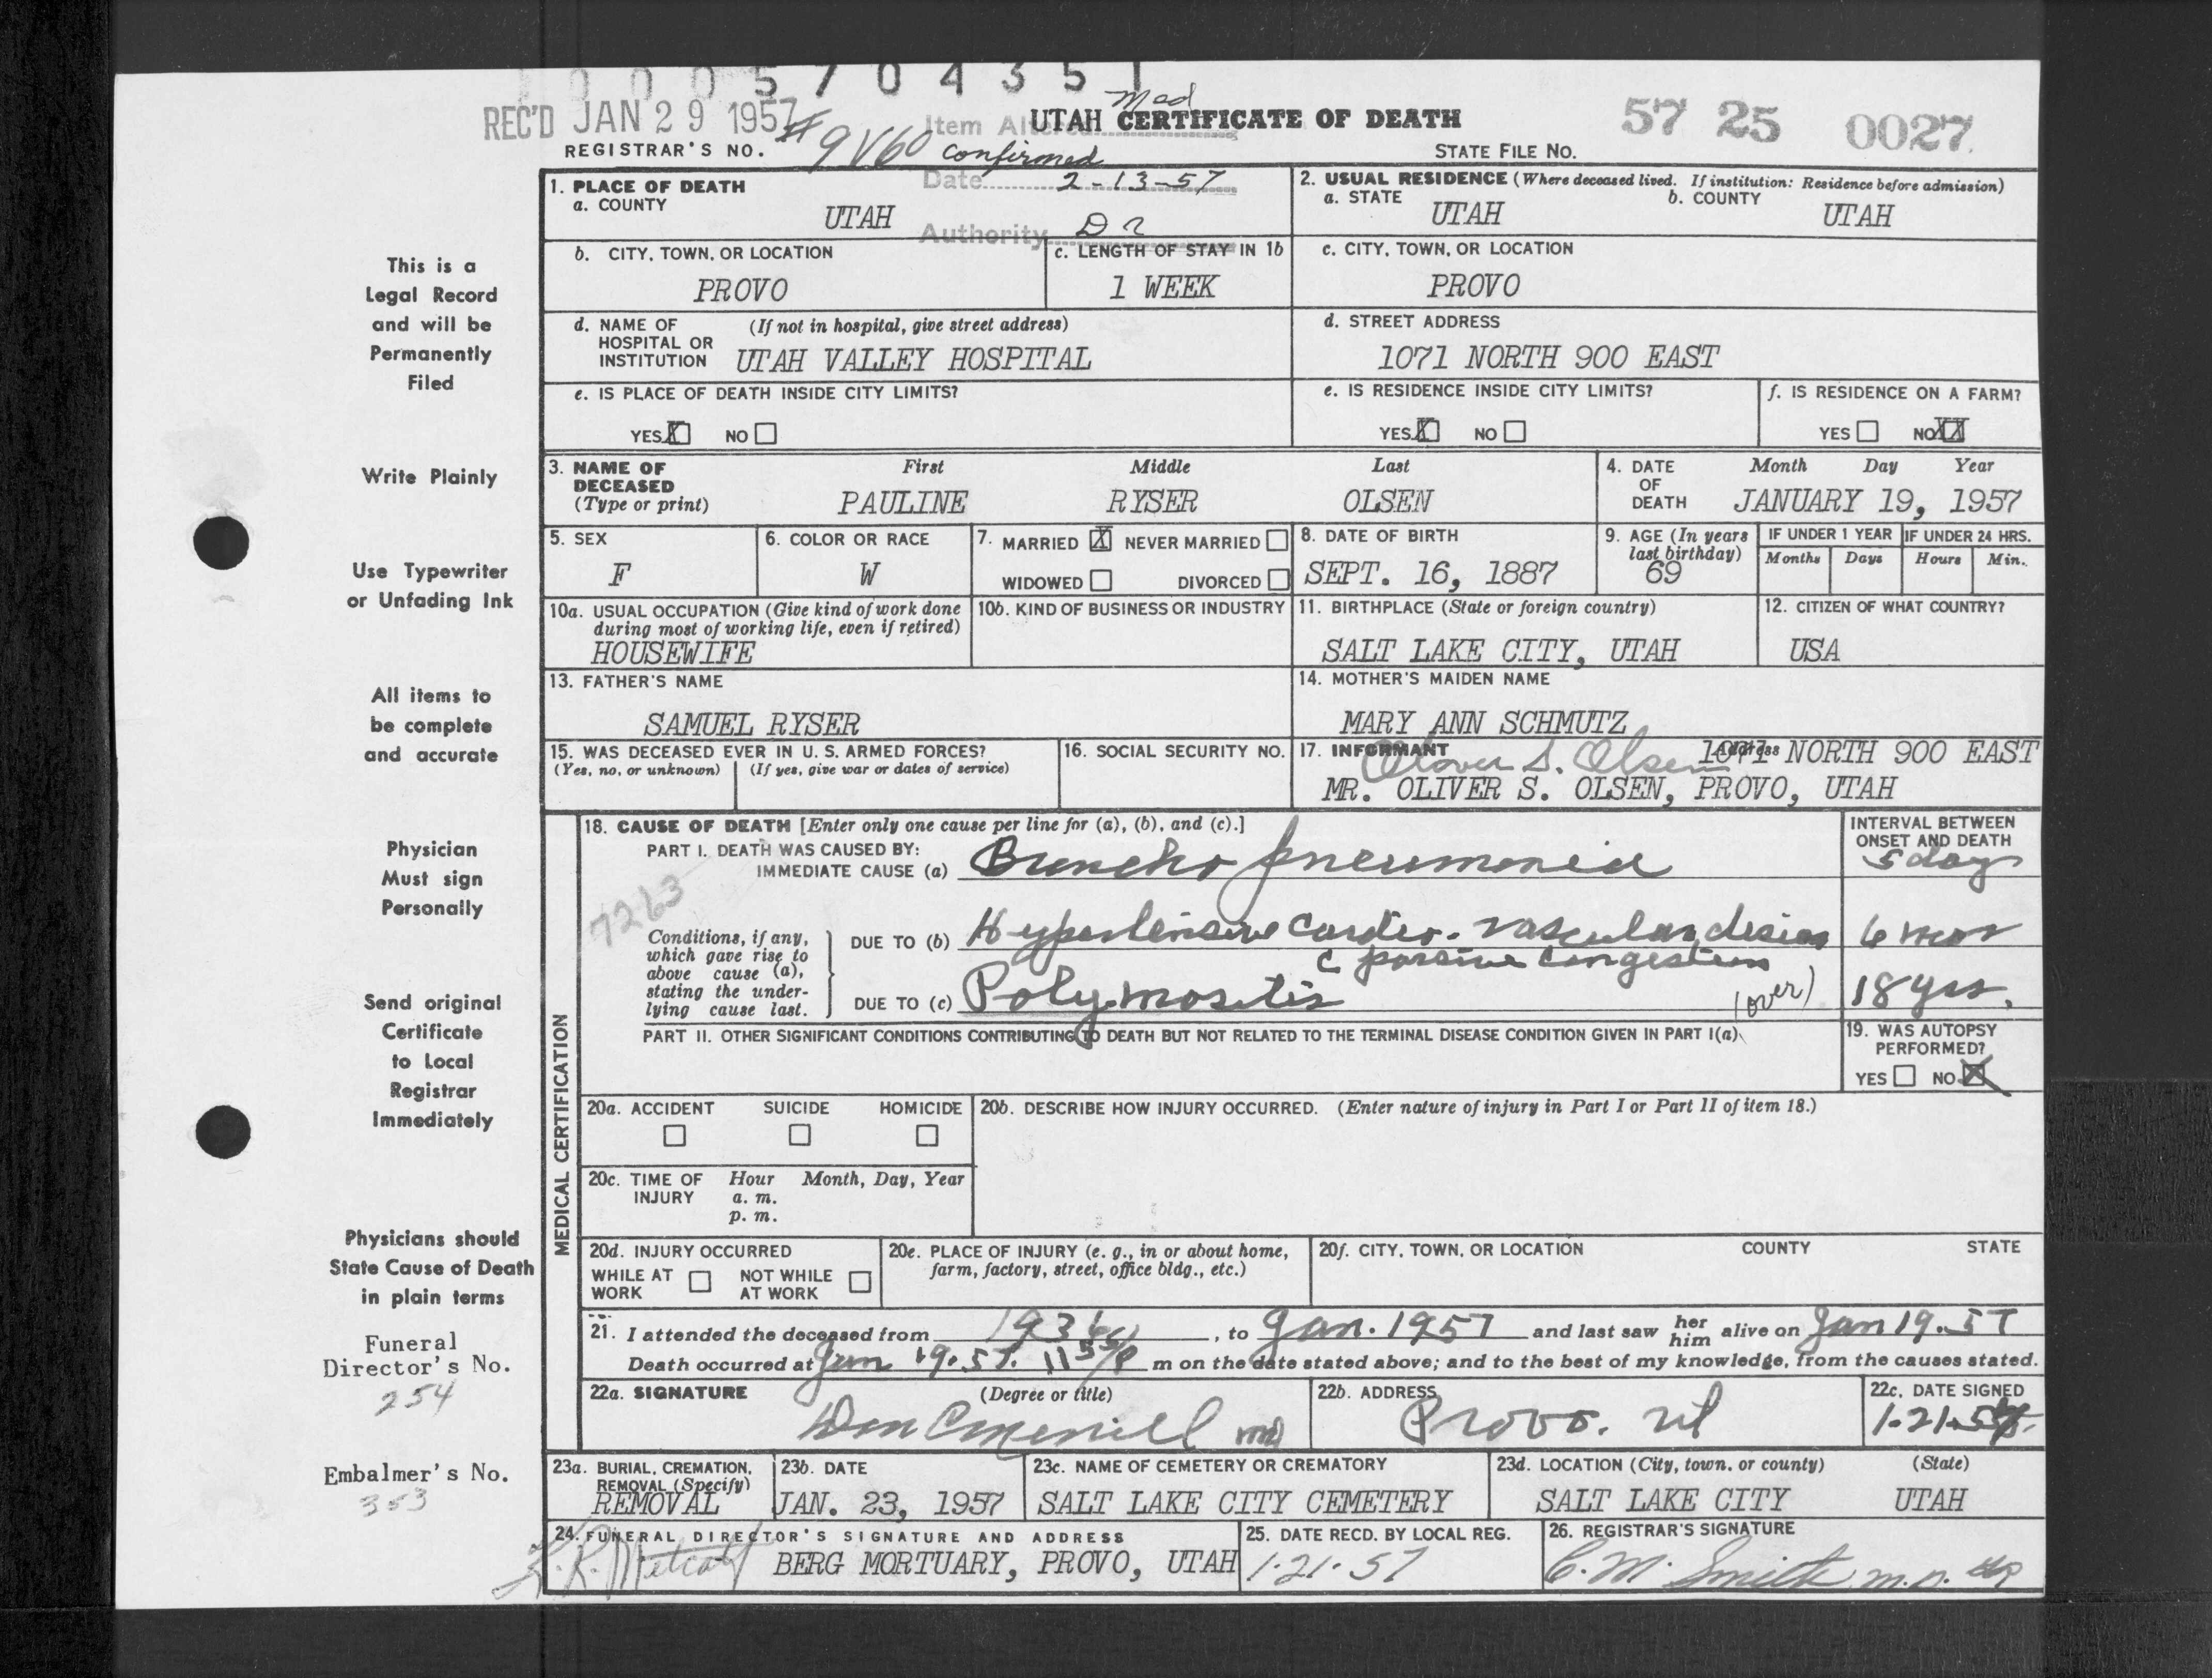 0 0 0 5 7 0 4 3 5 1
REC'D JAN 29 1957 Item Altered Med UTAH CERTIFICATE OF DEATH 57 25 0027
REGISTRAR'S NO. confirmed STATE FILE NO.
Date 2-13-57
Authority
1. PLACE OF DEATH
a. COUNTY
UTAH
2. USUAL RESIDENCE (Where deceased lived. If institution: Residence before admission)
a. STATE b. COUNTY
UTAH UTAH
b. CITY, TOWN, OR LOCATION
PROVO
c. LENGTH OF STAY IN 1b
1 WEEK
c. CITY, TOWN, OR LOCATION
PROVO
d. NAME OF (If not in hospital, give street address)
HOSPITAL OR
INSTITUTION UTAH VALLEY HOSPITAL
d. STREET ADDRESS
1071 NORTH 900 EAST
e. IS PLACE OF DEATH INSIDE CITY LIMITS?
YES X NO
e. IS RESIDENCE INSIDE CITY LIMITS?
YES X NO
f. IS RESIDENCE ON A FARM?
YES NO XX
3. NAME OF First Middle Last
DECEASED
(Type or print) PAULINE RYSER OLSEN
4. DATE Month Day Year
OF
DEATH JANUARY 19, 1957
5. SEX
F
6. COLOR OR RACE
W
7. MARRIED X NEVER MARRIED
WIDOWED DIVORCED
8. DATE OF BIRTH
SEPT. 16, 1887
9. AGE (In years
last birthday)
69
IF UNDER 1 YEAR IF UNDER 24 HRS.
Months Days Hours Min.
10a. USUAL OCCUPATION (Give kind of work done
during most of working life, even if retired)
HOUSEWIFE
10b. KIND OF BUSINESS OR INDUSTRY
11. BIRTHPLACE (State or foreign country)
SALT LAKE CITY, UTAH
12. CITIZEN OF WHAT COUNTRY?
USA
13. FATHER'S NAME
SAMUEL RYSER
14. MOTHER'S MAIDEN NAME
MARY ANN SCHMUTZ
15. WAS DECEASED EVER IN U. S. ARMED FORCES?
(Yes, no, or unknown) (If yes, give war or dates of service)
16. SOCIAL SECURITY NO.
17. INFORMANT Address 1071 NORTH 900 EAST
Oliver S. Olsen
MR. OLIVER S. OLSEN, PROVO, UTAH
MEDICAL CERTIFICATION
18. CAUSE OF DEATH [Enter only one cause per line for (a), (b), and (c).]
INTERVAL BETWEEN
ONSET AND DEATH
PART I. DEATH WAS CAUSED BY:
IMMEDIATE CAUSE (a) Broncho pneumonia 5 days
7263
Conditions, if any,
which gave rise to
above cause (a),
stating the under-
lying cause last.
DUE TO (b) Hypertensive Cardio-vascular disease 6 mos
c passive congestion
DUE TO (c) Polymositis (over) 18 yrs.
PART II. OTHER SIGNIFICANT CONDITIONS CONTRIBUTING TO DEATH BUT NOT RELATED TO THE TERMINAL DISEASE CONDITION GIVEN IN PART I(a)
19. WAS AUTOPSY
PERFORMED?
YES NO X
20a. ACCIDENT SUICIDE HOMICIDE
20b. DESCRIBE HOW INJURY OCCURRED. (Enter nature of injury in Part I or Part II of item 18.)
20c. TIME OF Hour Month, Day, Year
INJURY a. m.
p. m.
20d. INJURY OCCURRED
WHILE AT NOT WHILE
WORK AT WORK
20e. PLACE OF INJURY (e. g., in or about home,
farm, factory, street, office bldg., etc.)
20f. CITY, TOWN, OR LOCATION COUNTY STATE
21. I attended the deceased from , to Jan. 1957 and last saw her him alive on Jan 19.57
Death occurred at Jan 19.57. 11 55 P m on the date stated above; and to the best of my knowledge, from the causes stated.
22a. SIGNATURE (Degree or title)
Don C Merrill MD
22b. ADDRESS
Provo. Ut
22c. DATE SIGNED
1-21-57
23a. BURIAL, CREMATION,
REMOVAL (Specify)
REMOVAL
23b. DATE
JAN. 23, 1957
23c. NAME OF CEMETERY OR CREMATORY
SALT LAKE CITY CEMETERY
23d. LOCATION (City, town, or county) (State)
SALT LAKE CITY UTAH
24. FUNERAL DIRECTOR'S SIGNATURE AND ADDRESS
L. R. Metcalf BERG MORTUARY, PROVO, UTAH
25. DATE RECD. BY LOCAL REG.
1-21-57
26. REGISTRAR'S SIGNATURE
C. M. Smith M.D.
This is a
Legal Record
and will be
Permanently
Filed
Write Plainly
Use Typewriter
or Unfading Ink
All items to
be complete
and accurate
Physician
Must sign
Personally
Send original
Certificate
to Local
Registrar
Immediately
Physicians should
State Cause of Death
in plain terms
Funeral
Director's No.
254
Embalmer's No.
353